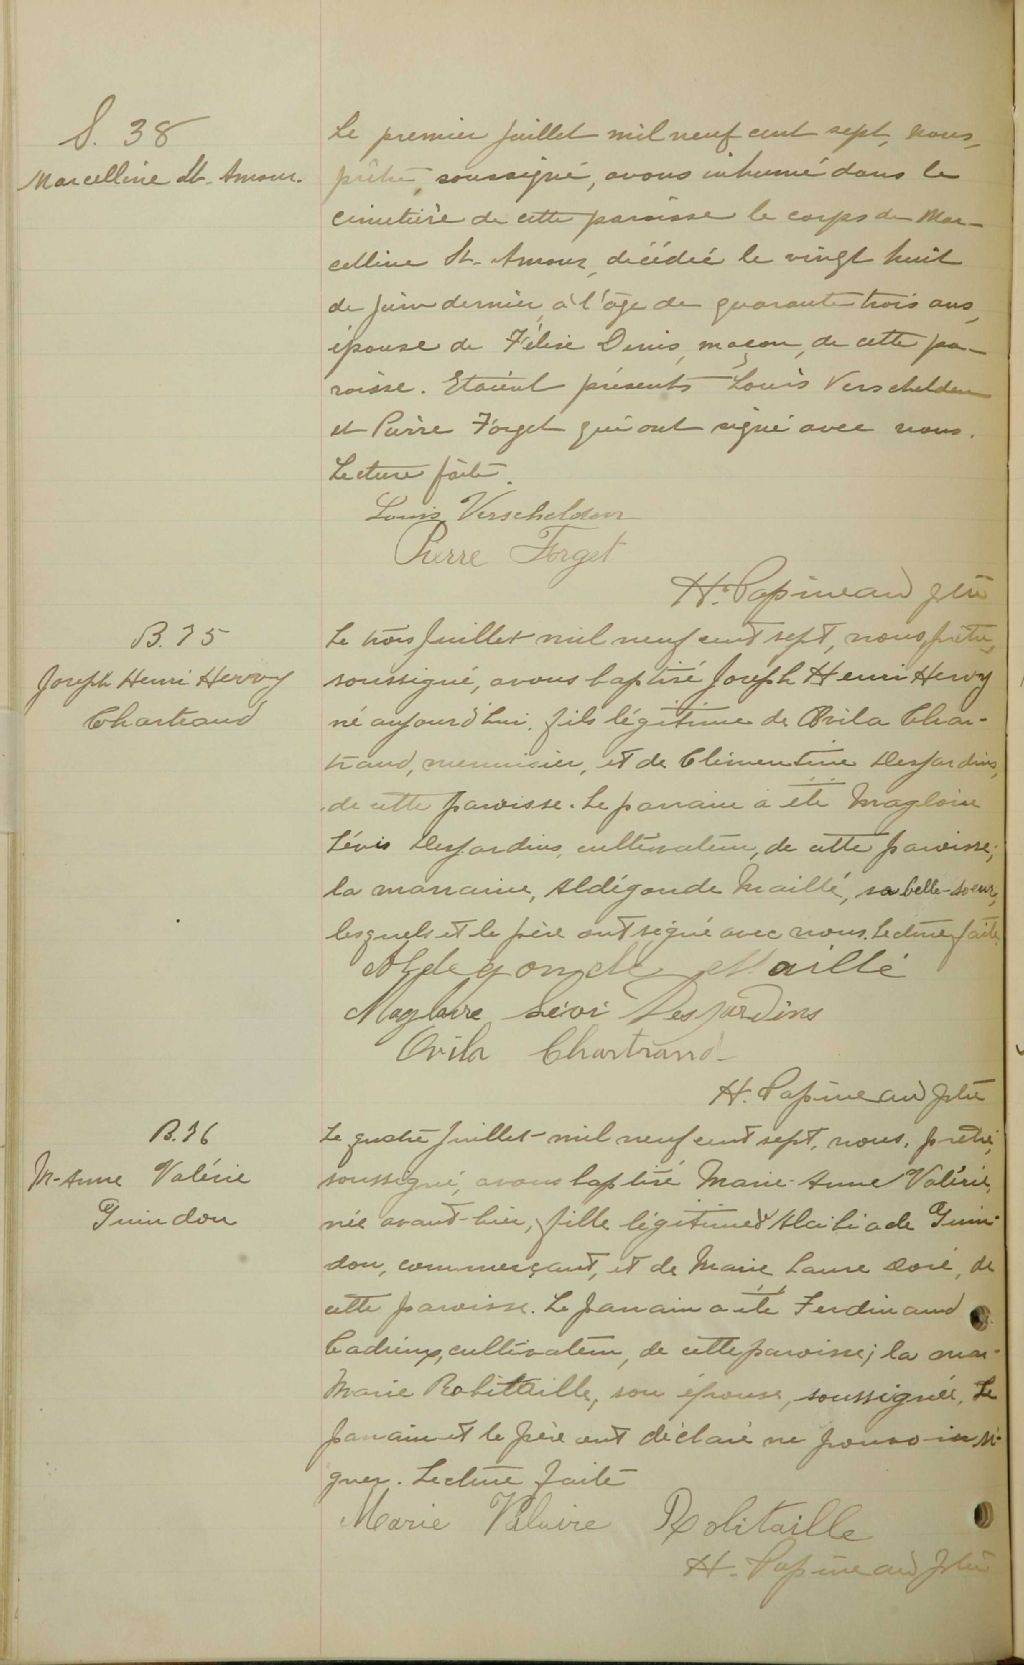 S. 38
Marcelline St-Amour.
Le premier Juillet mil neuf cent sept, nous,
prêtre, soussigné, avons inhumé dans le
cimetière de cette paroisse le corps de Mar-
celline St-Amour, décédée le vingt huit
de Juin dernier, à l'âge de quarante trois ans,
épouse de Félix Denis, maçon, de cette pa-
roisse. Etaient présents Louis Verschelden
et Pierre Forget qui ont signé avec nous.
Lecture faite.
Louis Verschelden
Pierre Forget
H. Papineau ptre
B. 35
Joseph Henri Hervy
Chartrand
Le trois Juillet mil neuf cent sept, nous, prêtre,
soussigné, avons baptisé Joseph Henri Hervy
né aujourd'hui, fils légitime de Ovila Char-
trand, menuisier, et de Clémentine Desjardins,
de cette paroisse. Le parrain a été Magloire
Lévis Desjardins, cultivateur, de cette paroisse;
la marraine, Aldégonde Maillé, sa belle-soeur,
lesquels et le père ont signé avec nous. Lecture faite.
Aldegonde Maillé
Magloire Lévi Desjardins
Ovila Chartrand
H. Papineau ptre
B. 36
M-Anne Valérie
Guindon
Le quatre Juillet mil neuf cent sept, nous, prêtre,
soussigné, avons baptisé Marie-Anne Valérie,
née avant-hier, fille légitime d'Alcibiade Guin-
don, commerçant, et de Marie Laure Doré, de
cette paroisse. Le parrain a été Ferdinand
Cadieux, cultivateur, de cette paroisse; la mar-
Marie Robitaille, son épouse, soussignée. Le
parrain et le père ont déclaré ne pouvoir si-
gner. Lecture faite
Marie Robitaille
H. Papineau ptre